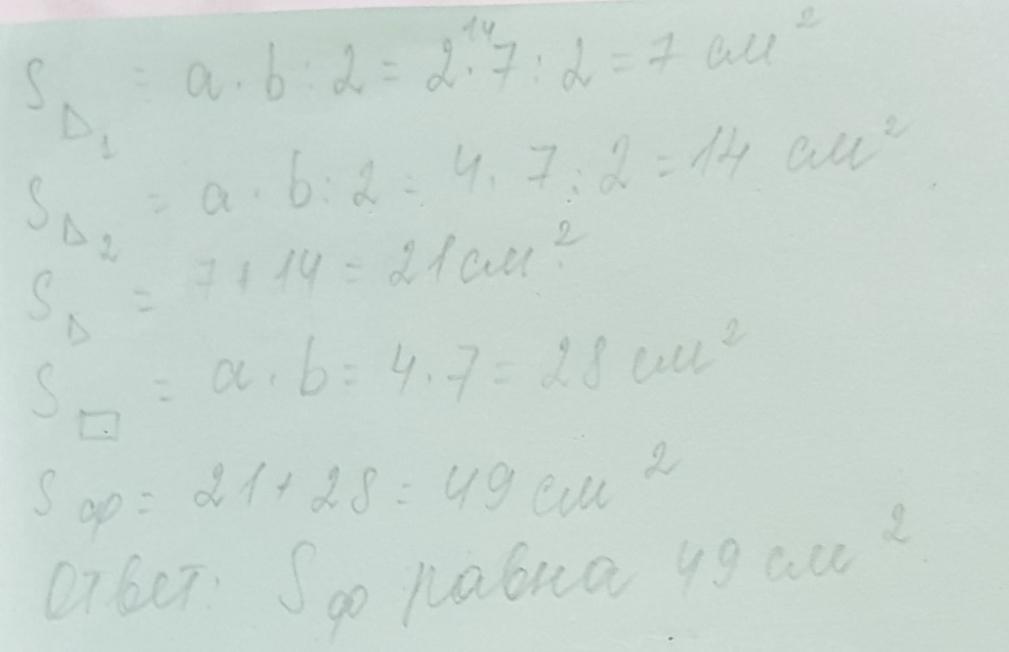 S△₁ = a · b : 2 = 2 ·¹⁴ 7 : 2 = 7 см²
S△₂ = a · b : 2 = 4 · 7 : 2 = 14 см²
S△ = 7 + 14 = 21 см²
S▭ = a · b = 4 · 7 = 28 см²
Sф = 21 + 28 = 49 см²
Ответ: Sф равна 49 см²